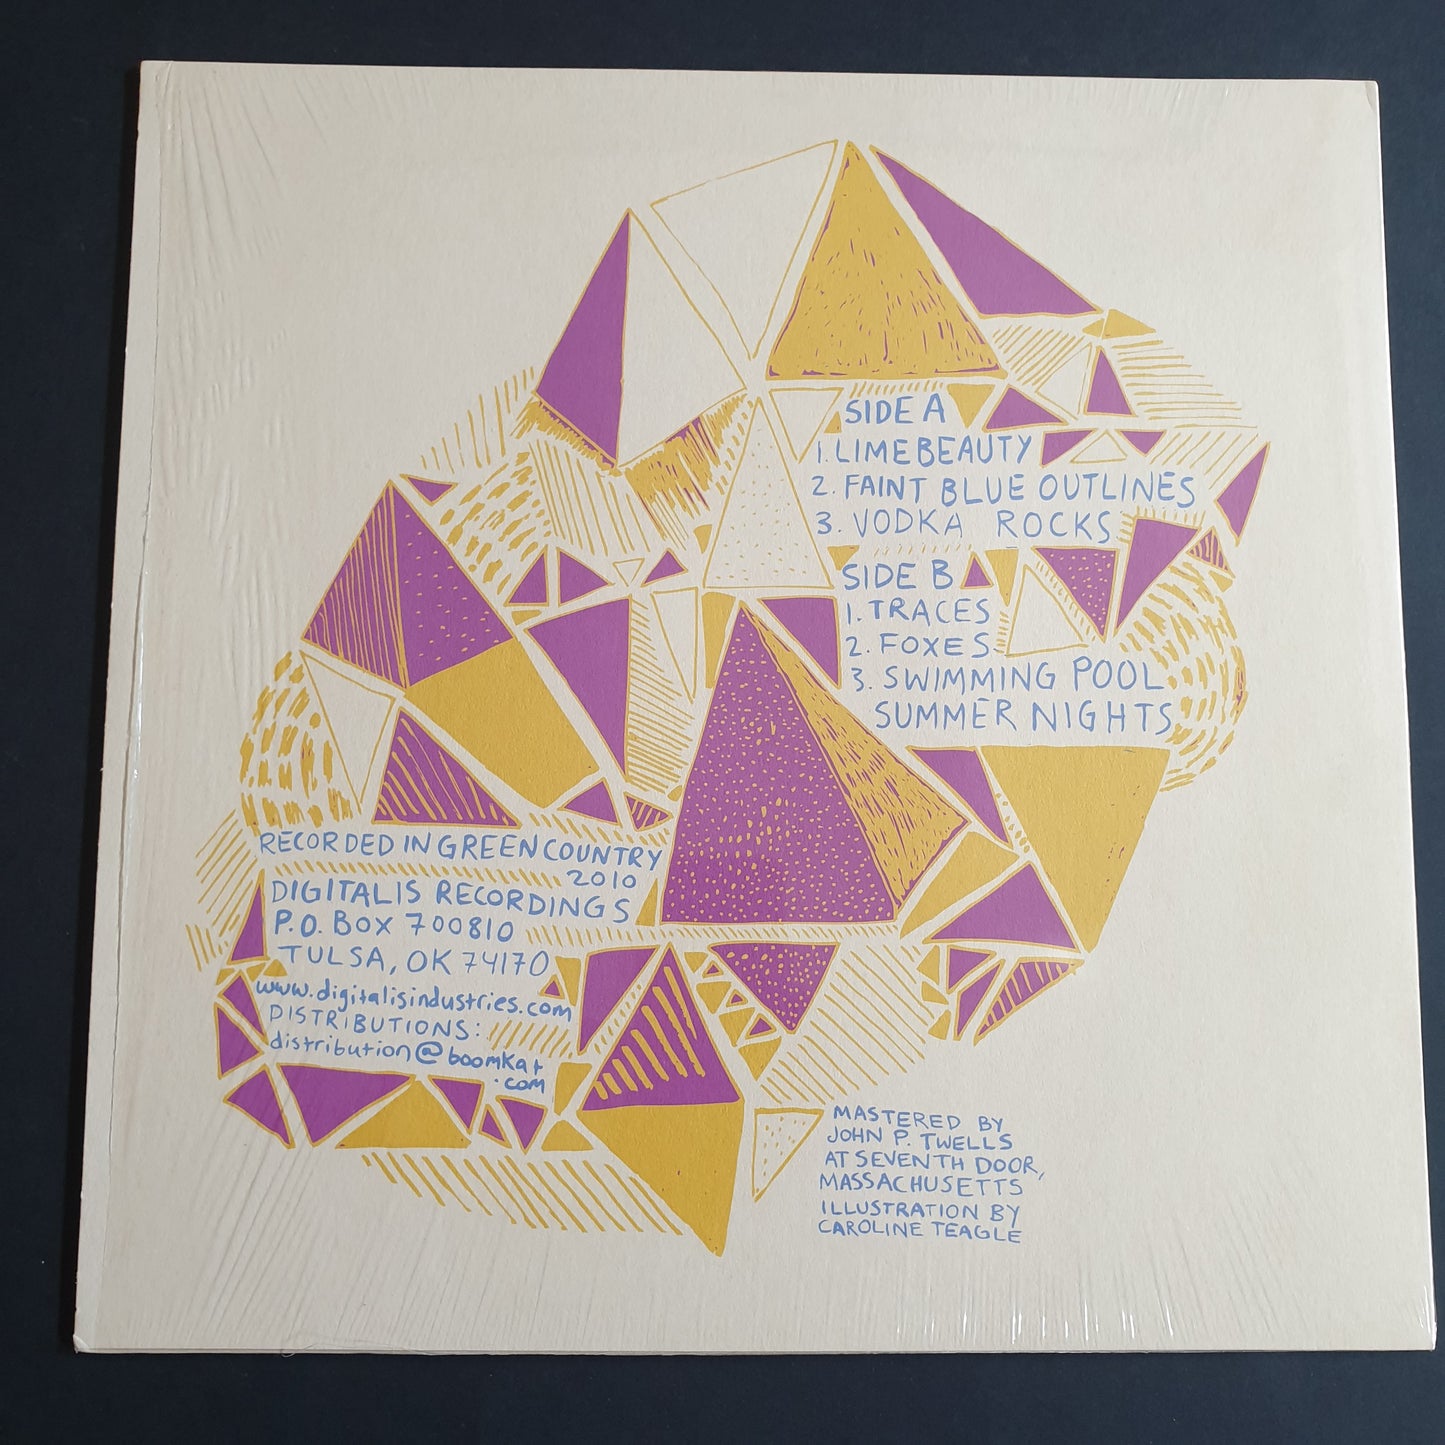 SIDE A
1. LIMEBEAUTY
2. FAINT BLUE OUTLINES
3. VODKA ROCKS
SIDE B
1. TRACES
2. FOXES
3. SWIMMING POOL
SUMMER NIGHTS
RECORDED IN GREEN COUNTRY
2010
DIGITALIS RECORDINGS
P.O. BOX 700810
TULSA, OK 74170
www.digitalisindustries.com
DISTRIBUTIONS:
distribution@boomkat
.com
MASTERED BY
JOHN P. TWELLS
AT SEVENTH DOOR,
MASSACHUSETTS
ILLUSTRATION BY
CAROLINE TEAGLE